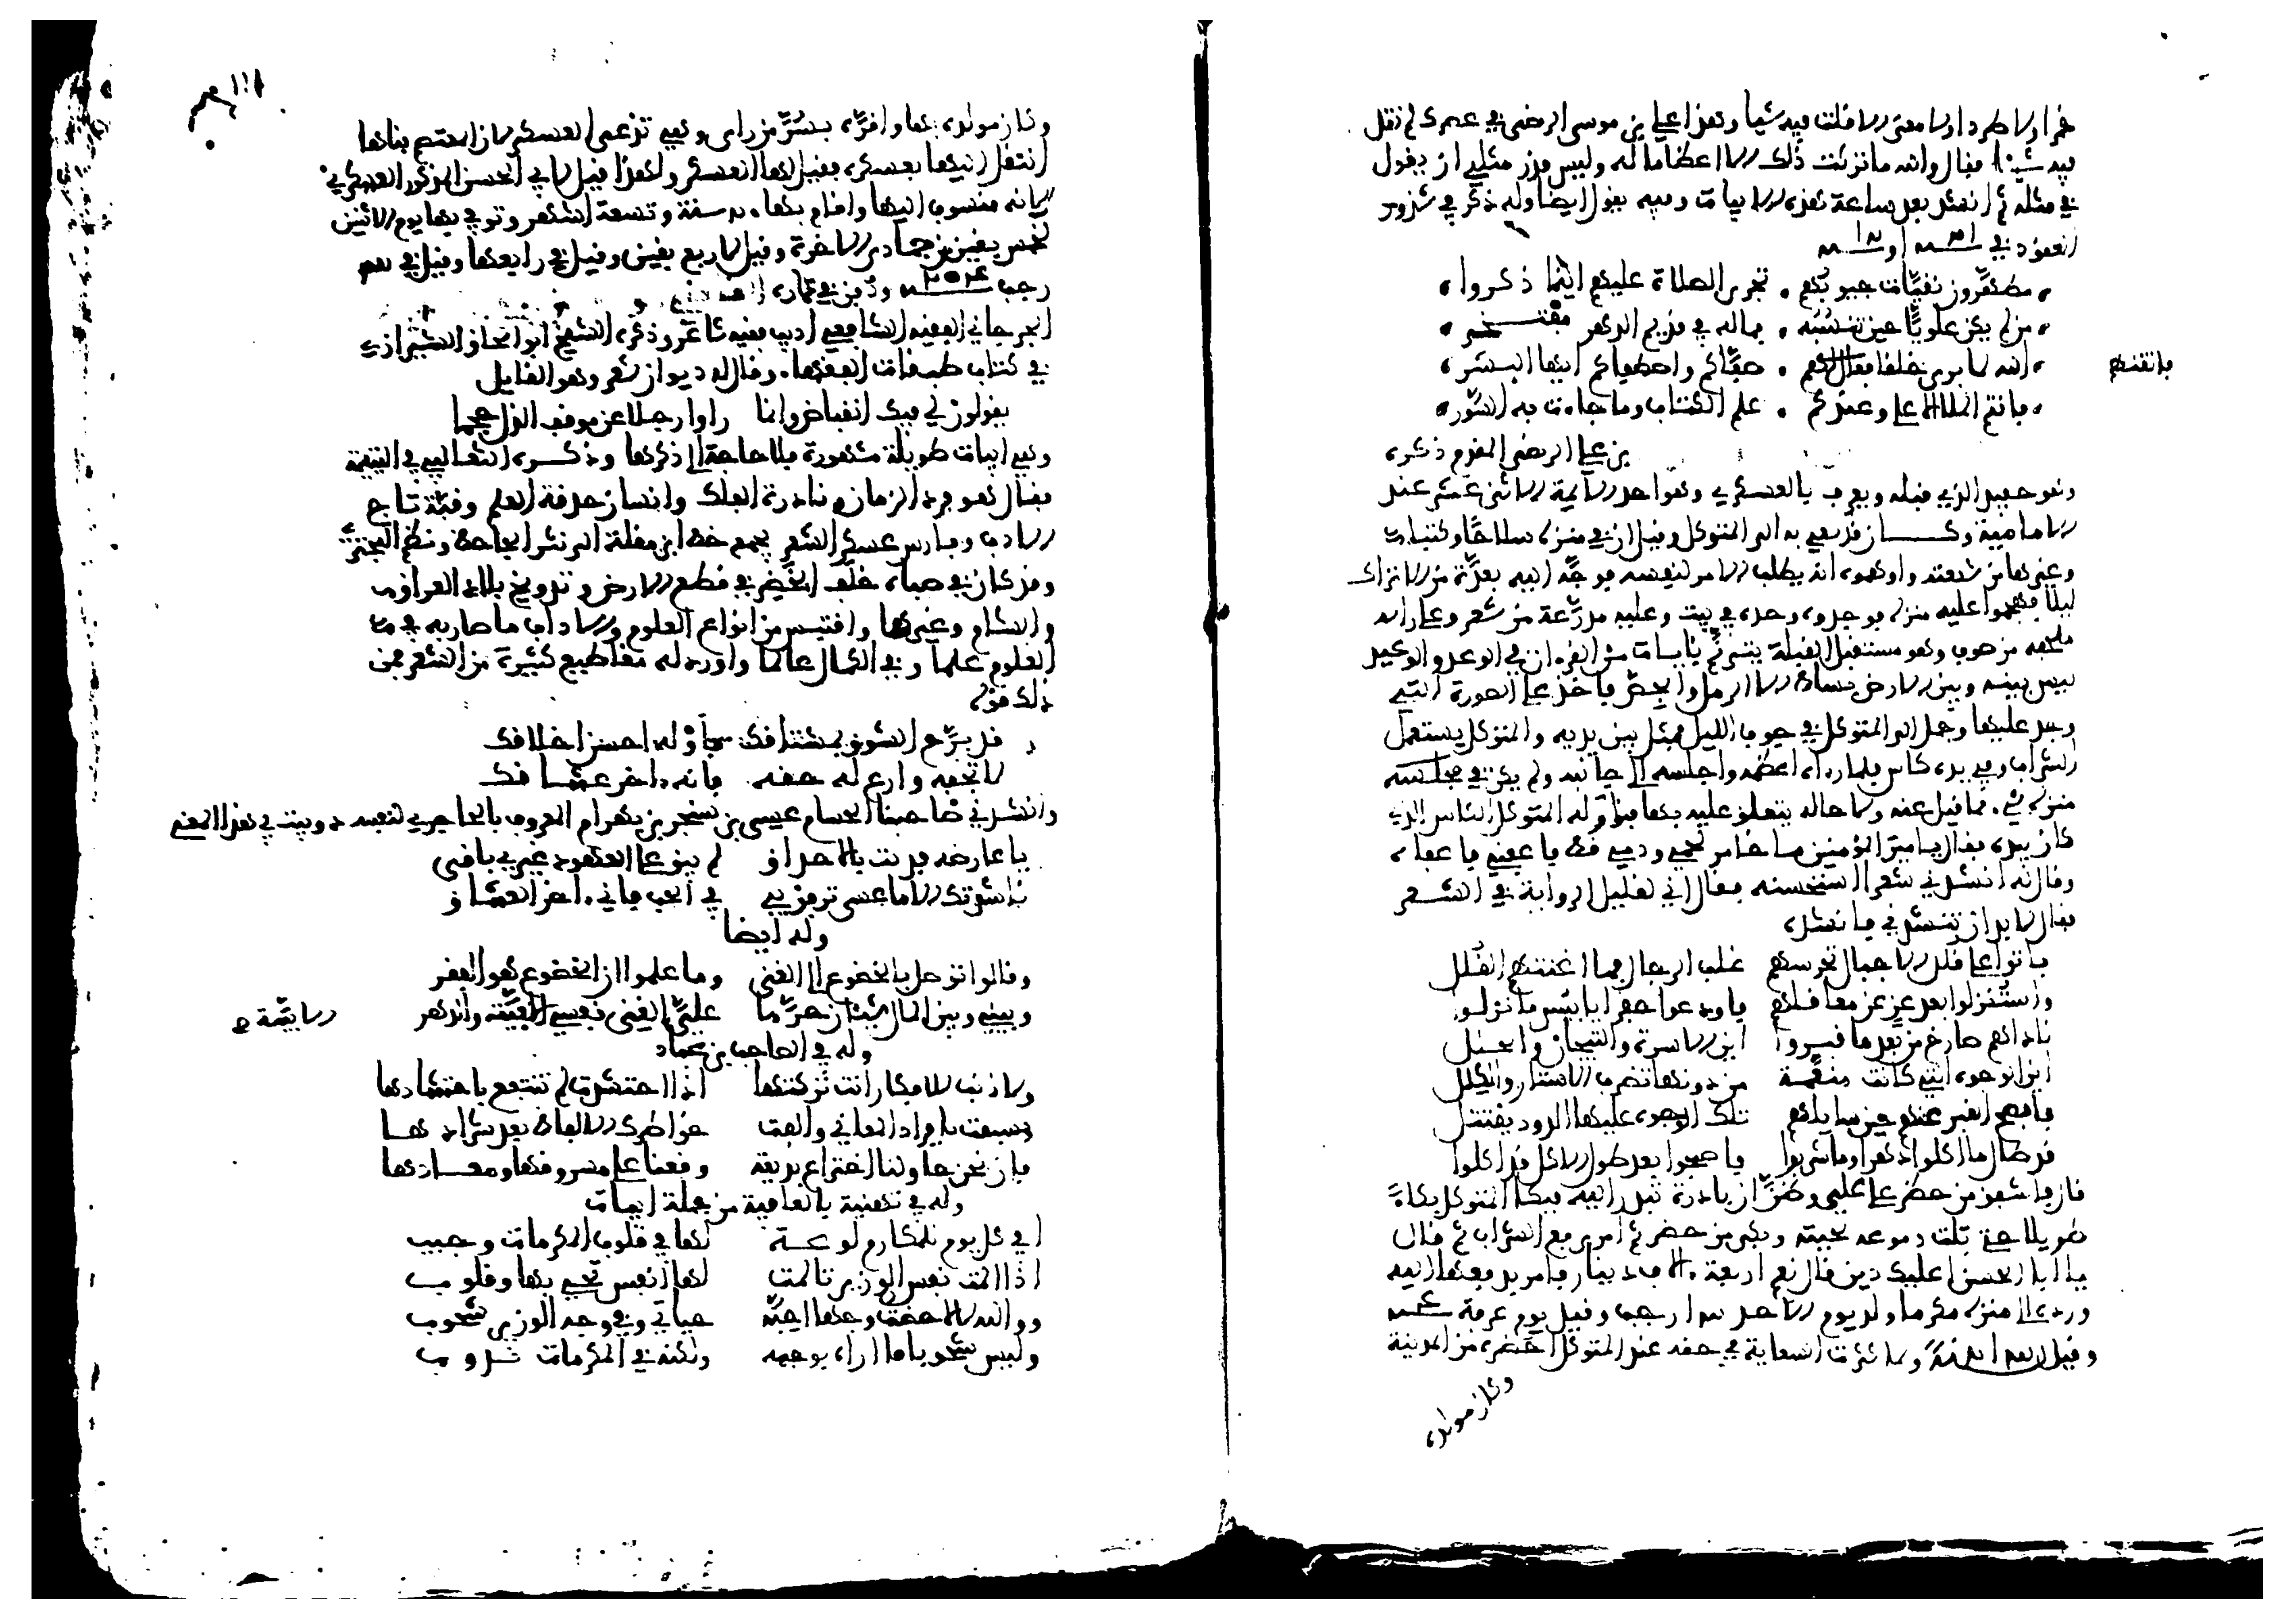 خمرا ولا طردا ولا معنى الا قلت فيه شيا وهذا علي بن موسى الرضى في عصرك لم تقل
فيه شيئا فقال والله ما تركت ذلك الا اعظاما له وليس قدر مثلي ان يقول
في مثله ثم انشد بعد ساعة هذه الابيات وفيه يقول ايضا وله ذكر في شذور
العقود في
مطهرون نقيات جيوبهم تجرى الصلاة عليهم اينما ذكروا
من لم يكن علويا حين تنسبه فماله في قديم الدهر مفتخر
الله لما برى خلقا فاتقنهم صفاكم واصطفاكم ايها البشر
فاتقنهم
فانتم الملا الاعلى وعندكم علم الكتاب وما جاءت به السور
بن علي الرضى المقدم ذكره
وهو حفيد الذي قبله ويعرف بالعسكري وهو احد الايمة الاثني عشر عند
الامامية وكان قد سعي به الى المتوكل وقيل ان في منزله سلاحا وكتبا
وغيرها من شيعته واوهموه انه يطلب الامر لنفسه فوجه اليه بعدة من الاتراك
ليلا فهجموا عليه منزله فوجدوه وحده في بيت وعليه مدرعة من شعر وعلى راسه
ملحفة من صوف وهو مستقبل القبلة يترنم بايات من القران في الوعد والوعيد
ليس بينه وبين الارض بساط الا الرمل والحصى فاخذ على الصورة التي
وجد عليها وحمل الى المتوكل في جوف الليل فمثل بين يديه والمتوكل يستعمل
الشراب وفي يده كاس فلما راه اعظمه واجلسه الى جانبه ولم يكن في
منزله شي مما قيل عنه ولا حاله يتعلق عليه بها فناوله المتوكل الكاس الذي
كان بيده فقال يا امير المؤمنين ما خامر لحمي ودمي قط فاعفني فاعفاه
وقال له انشدني شعرا استحسنه فقال اني لقليل الرواية في الشعر
فقال لا بد ان تنشدني فانشده
باتوا على قلل الاجبال تحرسهم غلب الرجال فما اغنتهم القلل
واستنزلوا بعد عز عن معاقلهم فاودعوا حفرا يا بيس ما نزلوا
ناداهم صارخ من بعد ما قبروا اين الاسرة والتيجان والحلل
اين الوجوه التي كانت منعمة من دونها تضرب الاستار والكلل
فافصح القبر عنهم حين سايلهم تلك الوجوه عليها الدود يقتتل
قد طال ما اكلوا دهرا وما شربوا فاصبحوا بعد طول الاكل قد اكلوا
قال فاشفق من حضر على علي وظن ان بادرة تبدر اليه فبكا المتوكل بكاء
طويلا حتى بلت دموعه لحيته وبكى من حضر ثم امر برفع الشراب ثم قال
يا ابا الحسن اعليك دين قال نعم اربعة الاف دينار فامر بدفعها اليه
ورده الى منزله مكرما ولد يوم الاحد رجب وقيل يوم عرفة
وقيل ولما كثرت السعاية في حقه عند المتوكل احضره من المدينة
وكان مولده
وكان مولده بها واقره بسر من راى وهي تدعى العسكر لان المعتصم بناها
انتقل اليها بعسكره فقيل لها العسكر ولهذا قيل لابي الحسن المذكور العسكري
لانه منسوب اليها واقام بها سنة وتسعة اشهر وتوفي بها يوم الاثنين
لخمس بقين من جمادى الاخرة وقيل لاربع بقين وقيل في رابعها وقيل في
رجب ودفن في داره
الجرجاني الفقيه الشافعي اديب فقيه شاعر وذكره الشيخ ابو اسحاق الشيرازي
في كتاب طبقات الفقهاء وقال له ديوان شعر وهو القايل
يقولون لي فيك انقباض وانما راوا رجلا عن موقف الذل احجما
وهي ابيات طويلة مشهورة فلا حاجة الى ذكرها وذكره الثعالبي في اليتيمة
فقال هو فرد الزمان ونادرة الفلك وانسان حدقة العلم وقبة تاج
الادب وفارس عسكر الشعر يجمع خط ابن مقلة الى نثر الجاحظ ونظم البحتري
وقد كان في صباه خلف الخضر في قطع الارض وتدويخ بلاد العراق
والشام وغيرها واقتبس من انواع العلوم والاداب ما صار به في
العلوم علما وفي الكمال عالما واورد له مقاطيع كثيرة من الشعر فمن
ذلك قوله
قد برح الشوق بمشتاقك فاوله احسن اخلاقك
لا تجفه وارع له حقه فانه اخر عشاقك
وانشدني صاحبنا الحسام عيسى بن سنجر بن بهرام المعروف بالحاجري لنفسه دوبيت في هذا المعنى
يا عارضه فديت بالاحداق لم يبق على العهود غيري باقي
ناشدتك الا ما عسى ترفق بي في الحب فاني اخر العشاق
وله ايضا
وقالوا توصل بالخضوع الى الغنى وما علموا ان الخضوع هو الفقر
وبيني وبين المال شيئان حرما علي الغنى نفسي الابية والدهر
الابية
وله في الصاحب بن عباد
ولا ذنب للافكار انت تركتها اذا احتشدت لم تنتفع باحتشادها
سبقت بافراد المعاني والفت خواطرك الالفاظ بعد شرادها
فان نحن حاولنا اختراع بديعة وقعنا على مسروقها ومعادها
وله في تهنية بالعافية من جملة ابيات
افي كل يوم للمكارم لوعة لها في قلوب المكرمات وجيب
اذا المت نفس الوزير تالمت لها انفس تحيي بها وقلوب
ووالله لا لاحظت وجها احبه حياتي وفي وجه الوزير شحوب
وليس شحوبا ما اراه بوجهه ولكنه في المكرمات ندوب